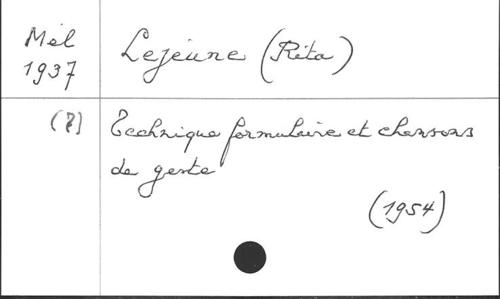 Mél Lejeune (Rita)
1937
(8) Technique formulaire et chansons
de geste
(1954)